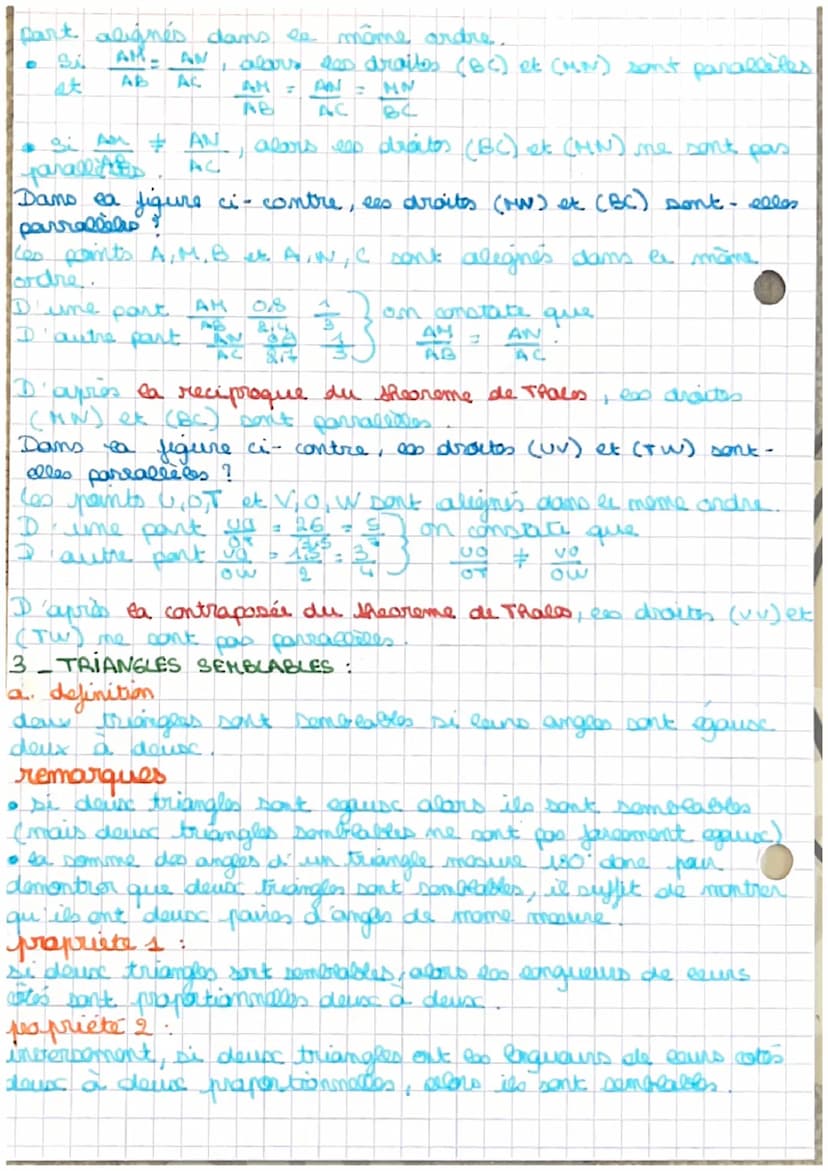 sont alignés dans le même ordre.
• Si AM/AB = AN/AC, alors les droites (BC) et (MN) sont parallèles
et AM/AB = AN/AC = MN/BC
• Si AM/AB ≠ AN/AC, alors les droites (BC) et (MN) ne sont pas
parallèles.
Dans la figure ci-contre, les droites (MN) et (BC) sont-elles
parrallèles ?
Les points A, M, B et A, N, C sont alegnés dans le même
ordre.
D'une part AM/AB 0,8/2,4 1/3 } on constate que
D'autre part AN/AC 0,9/2,7 1/3 } AM/AB = AN/AC.
D'après la reciproque du theoreme de Thales, les droites
(MN) et (BC) sont parralèlles.
Dans la figure ci-contre, les droites (UV) et (TW) sont-
elles parrallèles ?
Les points U,O,T et V,O,W sont alignés dans le meme ordre.
D'une part UO/OT = 26/ = 5/7 } on constate que
D'autre part VO/OW = 1,5/2 = 3/4 } UO/OT ≠ VO/OW
D'après la contraposée du theoreme de Thales, les droites (UV) et
(TW) ne sont pas parralèlles.
3 _ TRIANGLES SEMBLABLES :
a. definition
deux triangles sont semblables si leurs angles sont égaux
deux à deux.
remarques
• si deux triangles sont egaux alors ils sont semblables
(mais deux triangles semblables ne sont pas forcement egaux)
• la somme des angles d'un triangle mesure 180° donc pour
demontrer que deux triangles sont semblables, il suffit de montrer
qu'ils ont deux paires d'angles de meme mesure.
propriete 1 :
si deux triangles sont semblables, alors les longueurs de leurs
côtés sont proportionnelles deux à deux.
propriété 2 :
inversement, si deux triangles ont les longueurs de leurs cotés
deux à deux proportionnelles, alors ils sont semblables.